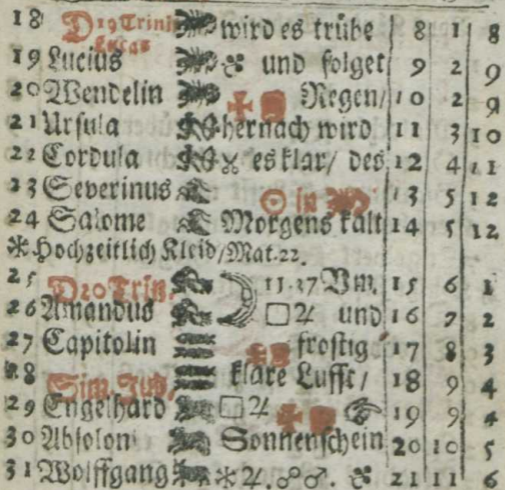 18 D19Trinit wird es trübe 8 1 8
Lucas
19 Lucius und folget 9 2 9
20 Wendelin Regen/ 10 2 9
21 Ursula hernach wird 11 3 10
22 Cordula es klar/ des 12 4 11
23 Severinus ☉ in 13 5 12
24 Salome Morgens kalt 14 5 12
✳ Hochzeitlich Kleid/Mat.22.
25 D20Trin. 11.37 Vm. 15 6 1
26 Amandus □♃ und 16 7 2
27 Capitolin frostig 17 8 3
28 Sim. Jud, klare Lufft/ 18 9 4
29 Engelhard □♃ ☞ 19 9 4
30 Absolon Sonnenschein 20 10 5
31 Wolffgang ✳♃.☍♂. 21 11 6